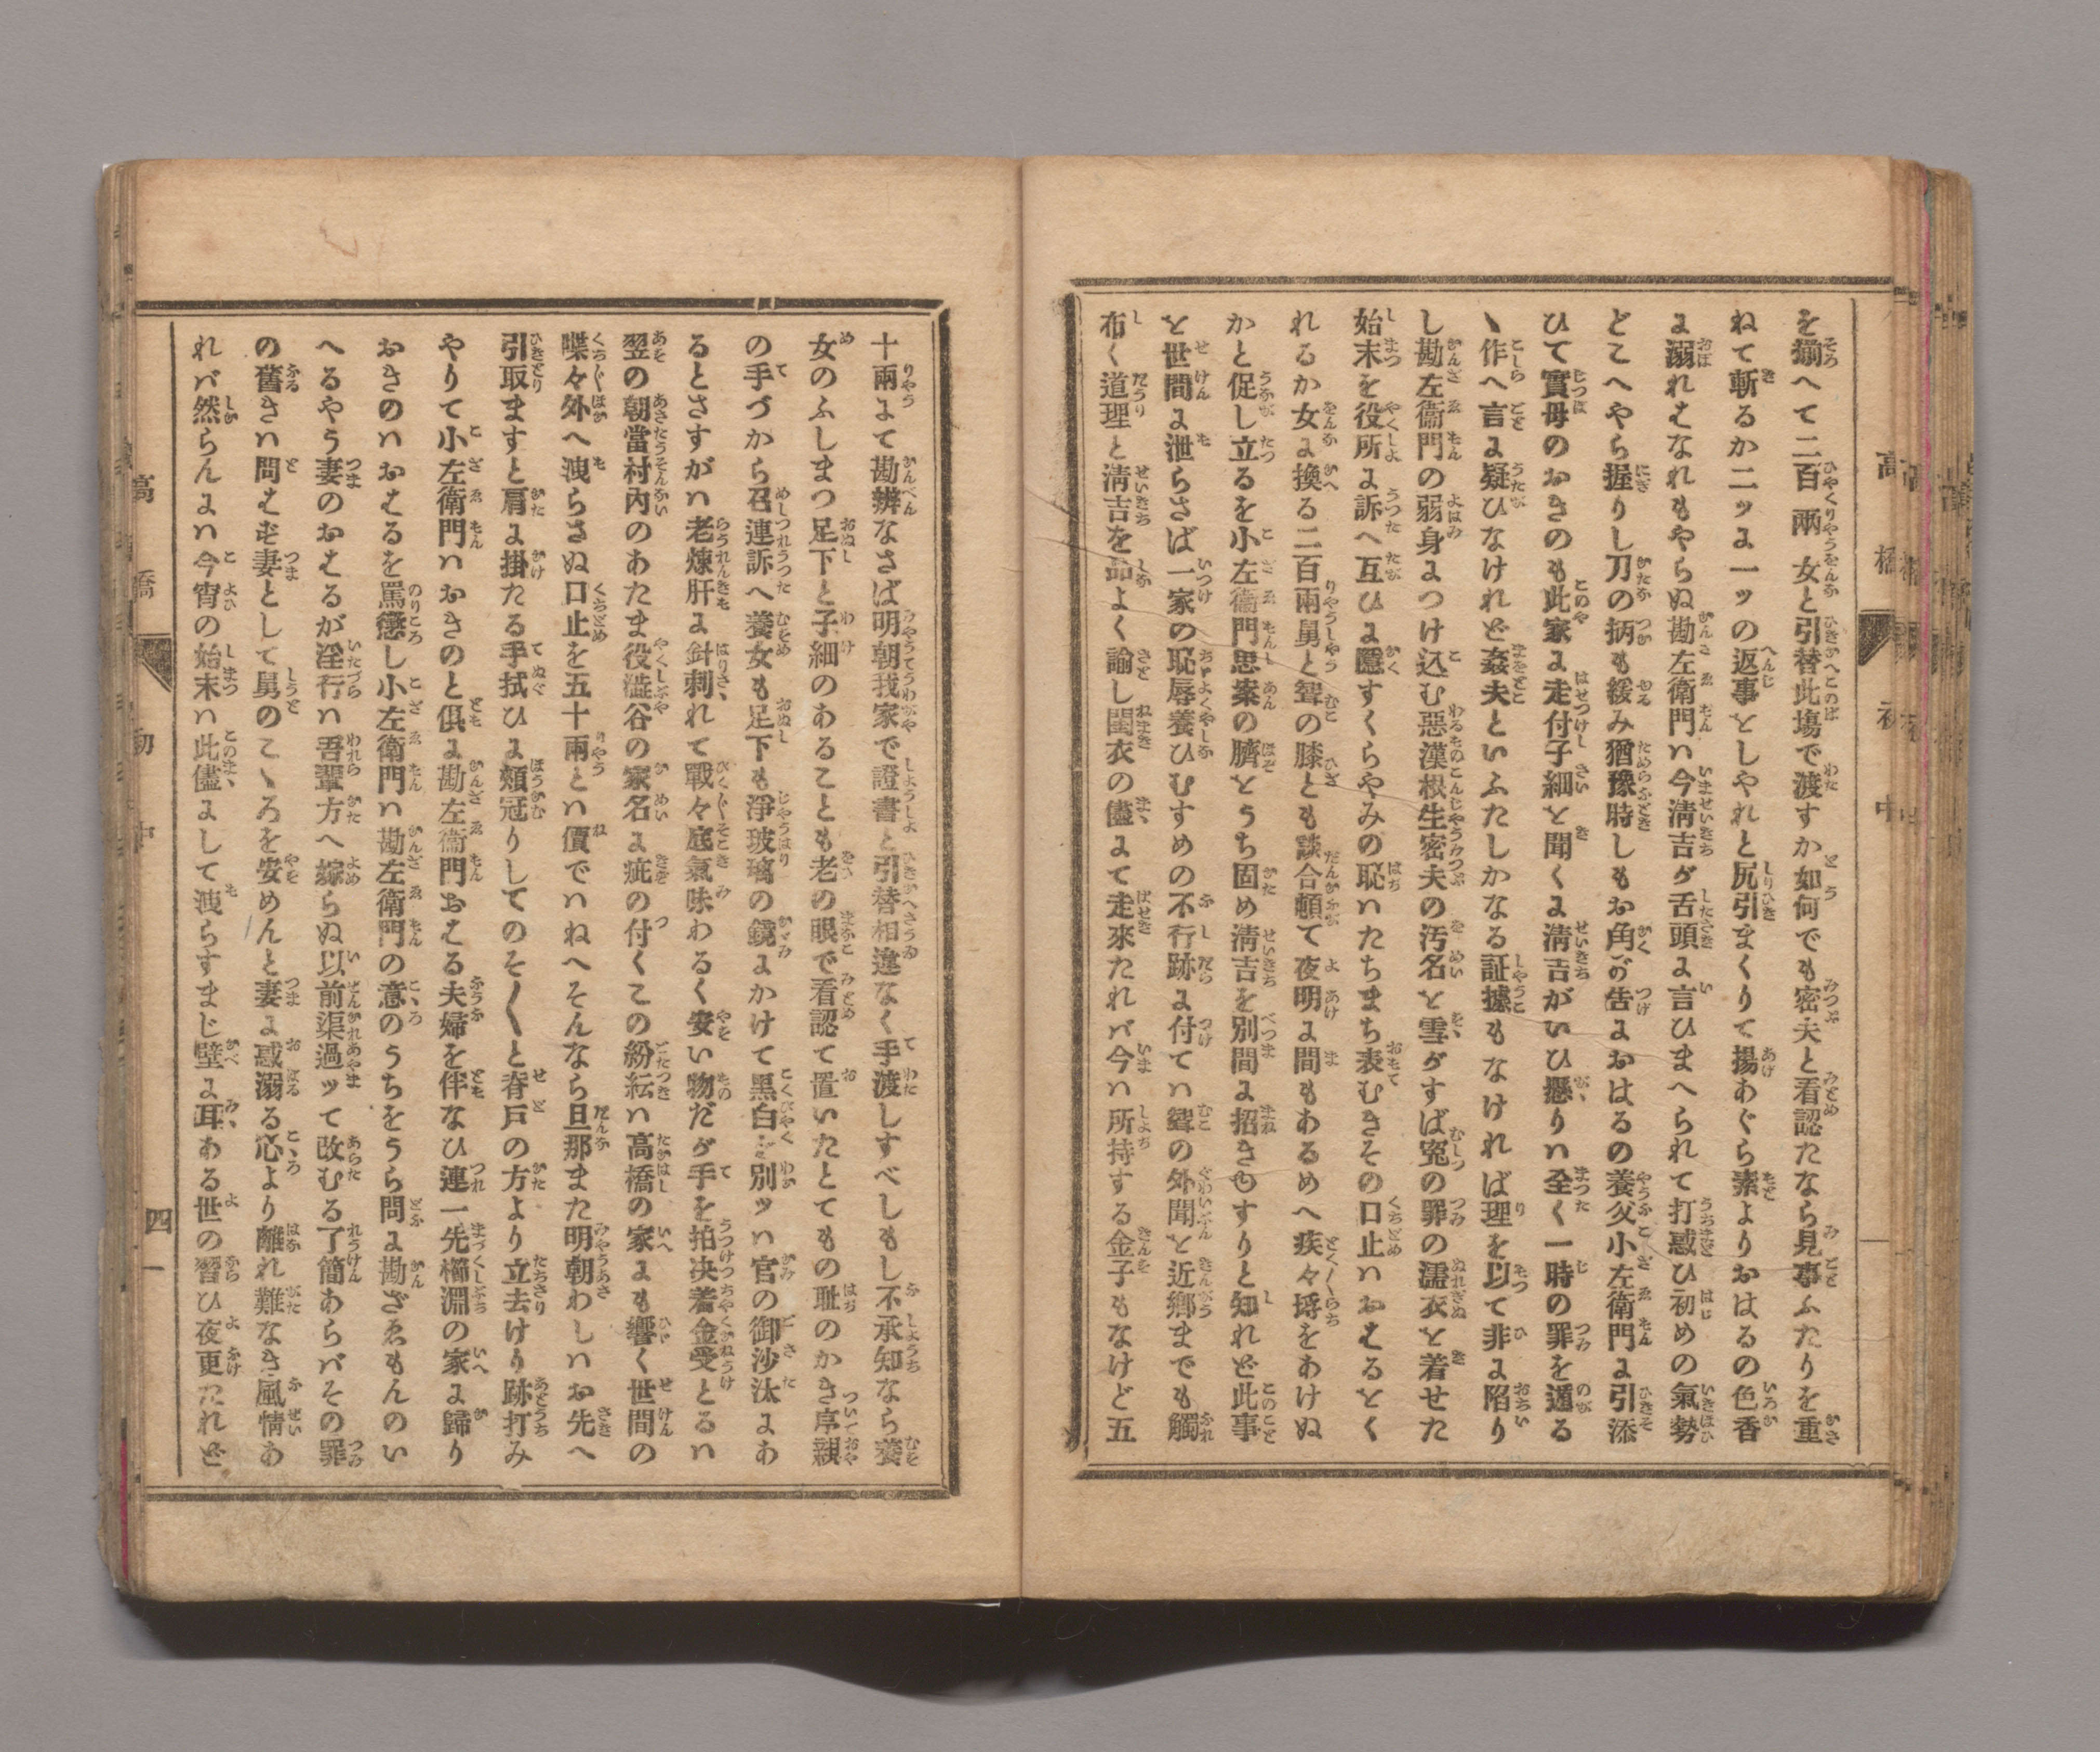 を揃へて二百兩女と引替此塲で渡すか如何でも密夫と看認たなら見事ふたりを重
ねて斬るか二ッに一ッの返事としやれと尻引まくりて揚あぐら素よりおはるの色香
に溺れそなれもやらぬ勘左衛門ハ今淸吉が舌頭に言ひまへられて打惑ひ初めの氣勢
どこへやら握りし刀の柄も緩み猶豫時しもお角が告におはるの養父小左衛門に引添
ひて實母のおきのも此家に走付子細を聞くに淸吉がいひ懸りハ全く一時の罪を遁る
ゝ作へ言に疑ひなけれど姦夫といふたしかなる証據もなければ理を以て非に陷り
し勘左衞門の弱身につけ込む惡漢根生密夫の汚名と雪がすば寃の罪の濡衣と着せた
始末を役所に訴へ互ひに隱すくらやみの恥ハたちまち表むきその口止ハおそるとく
れるか女に換る二百兩舅と聟の膝とも談合頓て夜明に間もあるめへ疾々埒をあけぬ
かと促し立るを小左衞門思案の臍とうち固め淸吉を別間に招きゆすりと知れど此事
と世間に泄らさば一家の恥辱養ひむすめの不行跡に付てハ聟の外聞と近鄕までも觸
布く道理と淸吉を品よく諭し閨衣の儘にて走來たれバ今ハ所持する金子もなけど五
高橋 初中
十兩にて勘辨なさば明朝我家で證書と引替相違なく手渡しすべしもし不承知なら養
女のふしまつ足下と子細のあることも老の眼で看認て置いたとてもの耻のかき序親
の手づから召連訴へ養女も足下も淨玻璃の鏡にかけて黑白と別ッハ官の御沙汰にあ
るとさすがハ老煉肝に針刺れて戰々底氣味わるく安い物だが手を拍决着金受とるハ
翌の朝當村内のあたま役澁谷の家名に疵の付くこの紛紜ハ高橋の家にも響く世間の
喋々外へ洩らさぬ口止を五十兩とハ價でハねへそんなら旦那また明朝わしハお先へ
引取ますと肩に掛たる手拭ひに頰冠りしてのそ〱と脊戸の方より立去けり跡打み
やりて小左衛門ハおきのと倶に勘左衞門おそる夫婦を伴なひ連一先櫛淵の家に歸り
おきのハおそるを罵懲し小左衛門ハ勘左衛門の意のうちをうら問に勘ざゑもんのい
へるやう妻のおそるが淫行ハ吾輩方へ嫁らぬ以前渠過ッて改むる了簡あらバその罪
の舊きハ問そを妻として舅のこゝろを安めんと妻に惑溺る心より離れ難なき風情あ
れバ然らんにハ今宵の始末ハ此儘にして洩らすまじ壁に耳ある世の習ひ夜更たれど
高橋 初中
四